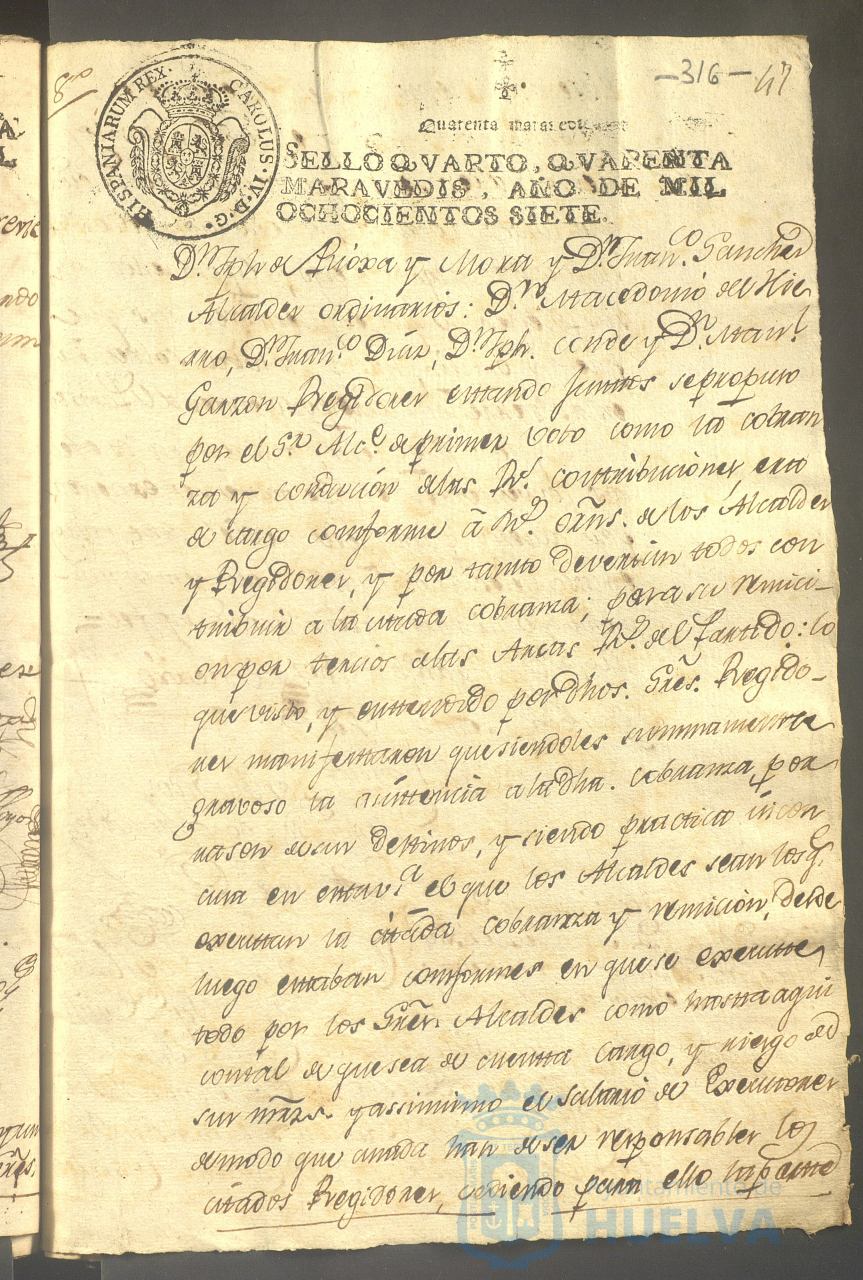 8º
-316- 47
HISPANIARUM REX. CAROLUS. IV. D. G.
Quarenta maravedis
SELLO QVARTO, QVARENTA
MARAVEDIS, AÑO DE MIL
OCHOCIENTOS SIETE.
Dn. Jph de Rioxa y Mora y Dn. Juan. Sanchez
Alcaldes ordinarios: Dn. Macedonio del Hie
rro, Dn. Fran.co Diaz, Dn. Jph. Conde y Dn. Man.l
Garzon Regidores estando juntos se propuso
por el Sr. Alc.e de primer voto como la cobran
za y condución de las Rs. contribuciones, era
de cargo comforme â Rs. orñs. de los Alcaldes
y Regidores, y por tanto deverian todos con
tribuir a la citada cobranza; para su remici-
on por tercios a las Arcas Rs. del Partido: lo
que visto, y entendido por dhos. Sres. Regido-
res manifestaron que siendoles summamente
gravoso la asistencia a la dha. cobranza por
rason de sus destinos, y siendo practica incon
cusa en esta v.a el que los Alcaldes sean los q.e
executan la citada cobranza y remición, desde
luego estaban comformes en que se execute
todo por los Sres. Alcaldes como hasta aqui
con tal de que sea de cuenta cargo, y riesgo de
sus mrzs. y assimimo el salario de Executores
de modo que a nada han de ser responsables los
citados Regidores, cediendo para ello la parte
Ayuntamiento de
HUELVA